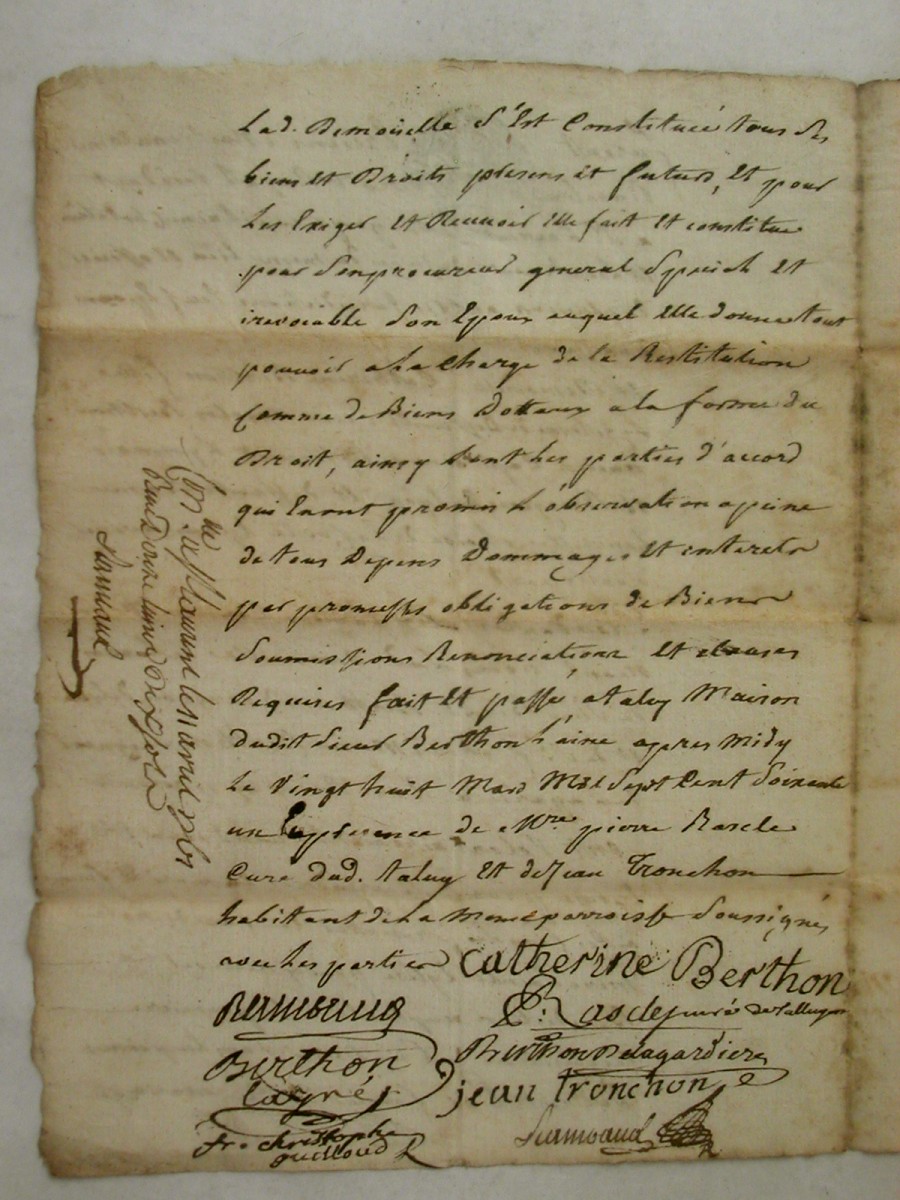 Lad. Demoiselle s'Est Constituée tous ses
biens et Droits presens et futurs, Et pour
Les Exiger et Recevoir Elle fait et constitue
pour son procureur general Special et
irrevocable son Epoux auquel Elle donne tout
pouvoir a La Charge de la Restitution
Comme de Biens Dottaux a la forme du
Droit, ainsy sont Les parties d'accord
qui En ont promis L'observation a peine
de tous Depens Dommages et interets
par promesses obligations de Biens
Soumissions Renonciations et clauses
Requises fait Et passé a taluy Maison
dudit Sieur Berthon L'ainé apres Midy
Le Vingt huit Mars Mil Sept Cent Soixante
un En presence de Mre pierre Rascle
Curé dud. taluy Et de Jean Tronchon
habitant de La meme parroisse Soussignés
avec Les parties Catherine Berthon
P. Rascle curé de
Berthon Berthon Delagardiere
jean tronchon
fr. christophe
guilloud
Con.lle a St Laurent le 11 avril 1761